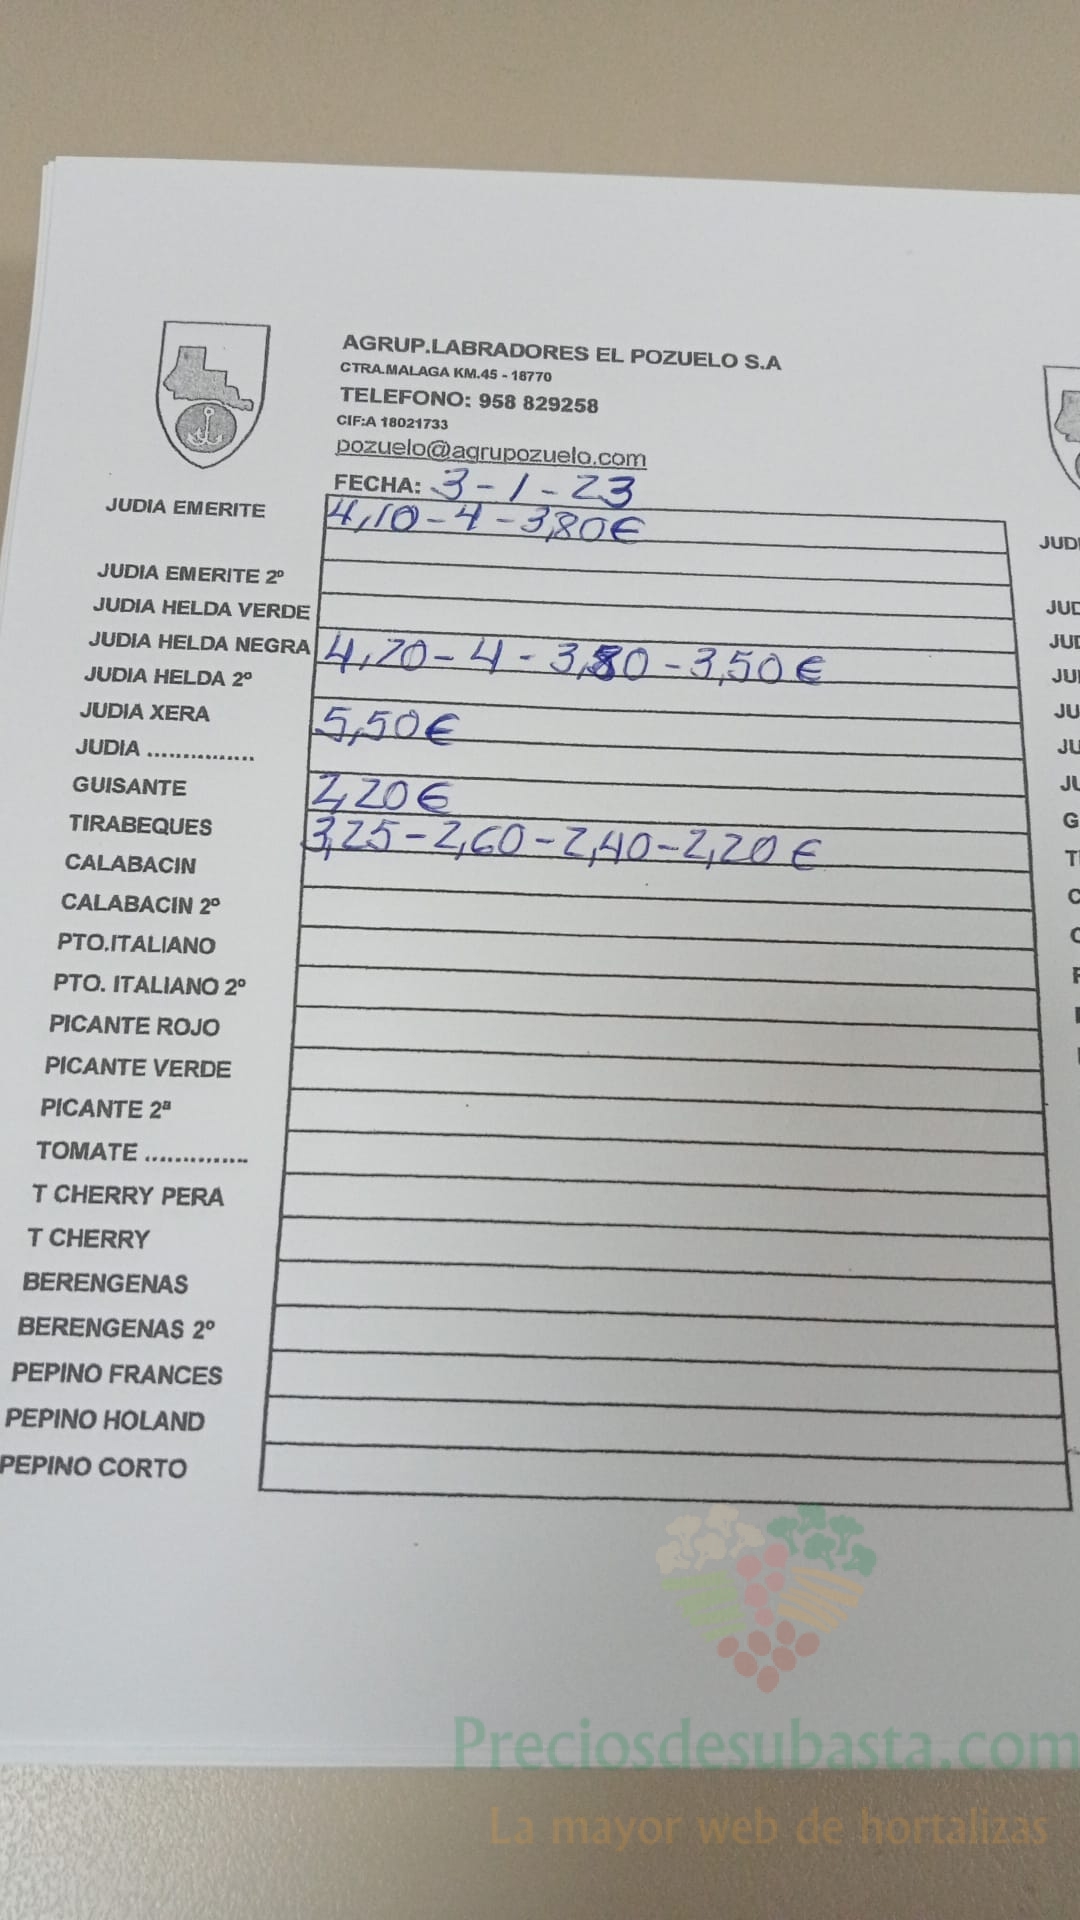 AGRUP.LABRADORES EL POZUELO S.A
CTRA.MALAGA KM.45 - 18770
TELEFONO: 958 829258
CIF:A 18021733
pozuelo@agrupozuelo.com
FECHA: 3-1-23
JUDIA EMERITE 4,10-4-3,80€
JUDIA EMERITE 2º
JUDIA HELDA VERDE
JUDIA HELDA NEGRA 4,20-4-3,80-3,50€
JUDIA HELDA 2º
JUDIA XERA 5,50€
JUDIA ...............
GUISANTE 2,20€
TIRABEQUES 3,25-2,60-2,40-2,20€
CALABACIN
CALABACIN 2º
PTO.ITALIANO
PTO. ITALIANO 2º
PICANTE ROJO
PICANTE VERDE
PICANTE 2ª
TOMATE ..............
T CHERRY PERA
T CHERRY
BERENGENAS
BERENGENAS 2º
PEPINO FRANCES
PEPINO HOLAND
PEPINO CORTO
Preciosdesubasta.com
La mayor web de hortalizas